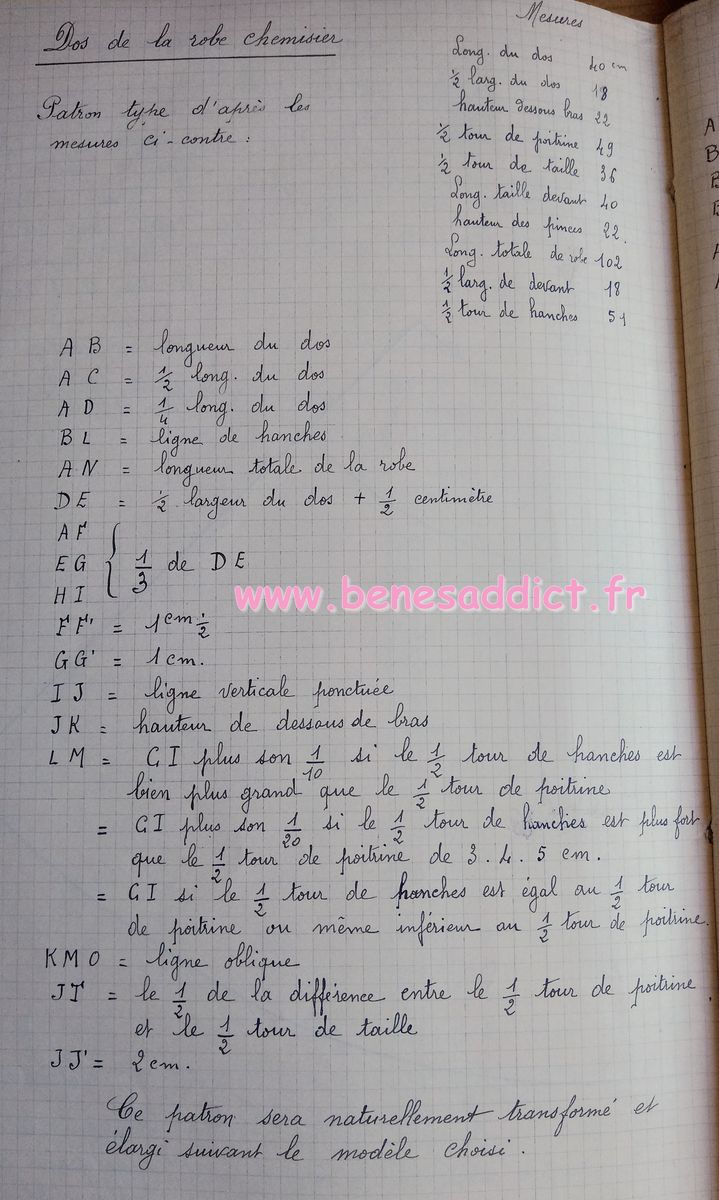 Mesures
Dos de la robe chemisier
Patron type d'après les
mesures ci-contre :
Long. du dos 40 cm
1/2 larg. du dos 18
hauteur dessous bras 22
1/2 tour de poitrine 49
1/2 tour de taille 36
Long. taille devant 40
hauteur des pinces 22.
Long. totale de robe 102
1/2 larg. de devant 18
1/2 tour de hanches 51
A B = longueur du dos
A C = 1/2 long. du dos
A D = 1/4 long. du dos
B L = ligne de hanches
A N = longueur totale de la robe
D E = 1/2 largeur du dos + 1/2 centimètre
A F
E G { 1/3 de D E
H I
www.benesaddict.fr
F F' = 1cm 1/2
G G' = 1 cm.
I J = ligne verticale ponctuée
J K = hauteur de dessous de bras
L M = C I plus son 1/10 si le 1/2 tour de hanches est
bien plus grand que le 1/2 tour de poitrine
= C I plus son 1/20 si le 1/2 tour de hanches est plus fort
que le 1/2 tour de poitrine de 3. 4. 5 cm.
= C I si le 1/2 tour de hanches est égal au 1/2 tour
de poitrine ou même inférieur au 1/2 tour de poitrine.
K M O = ligne oblique
= le 1/2 de la différence entre le 1/2 tour de poitrine
et le 1/2 tour de taille
J J' = 2 cm.
Ce patron sera naturellement transformé et
élargi suivant le modèle choisi.